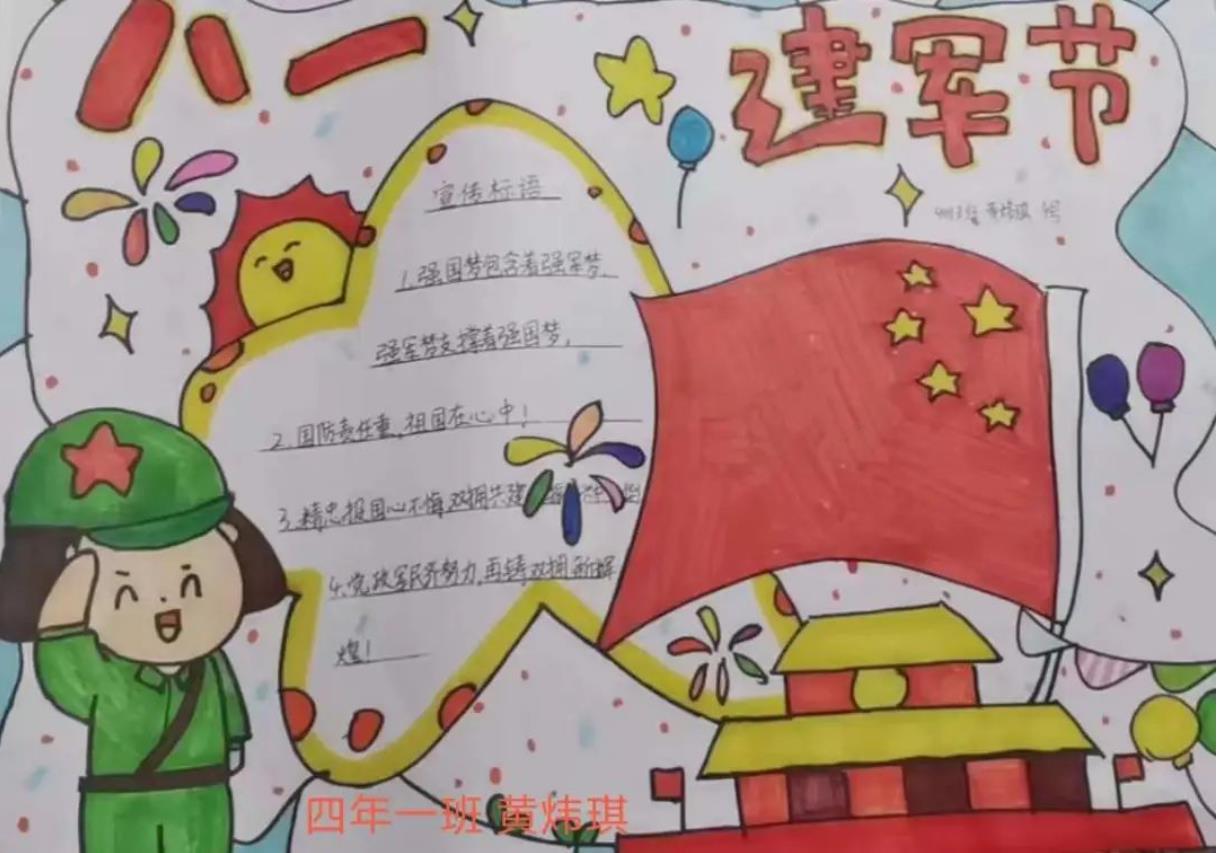 八一 建军节
宣传标语
1.强国梦包含着强军梦,
强军梦支撑着强国梦,
2.国防责任重,祖国在心中!
3.精忠报国心不悔 双拥共建
4.党政军民齐努力,再铸双拥新辉
煌!
四年一班 黄炜琪